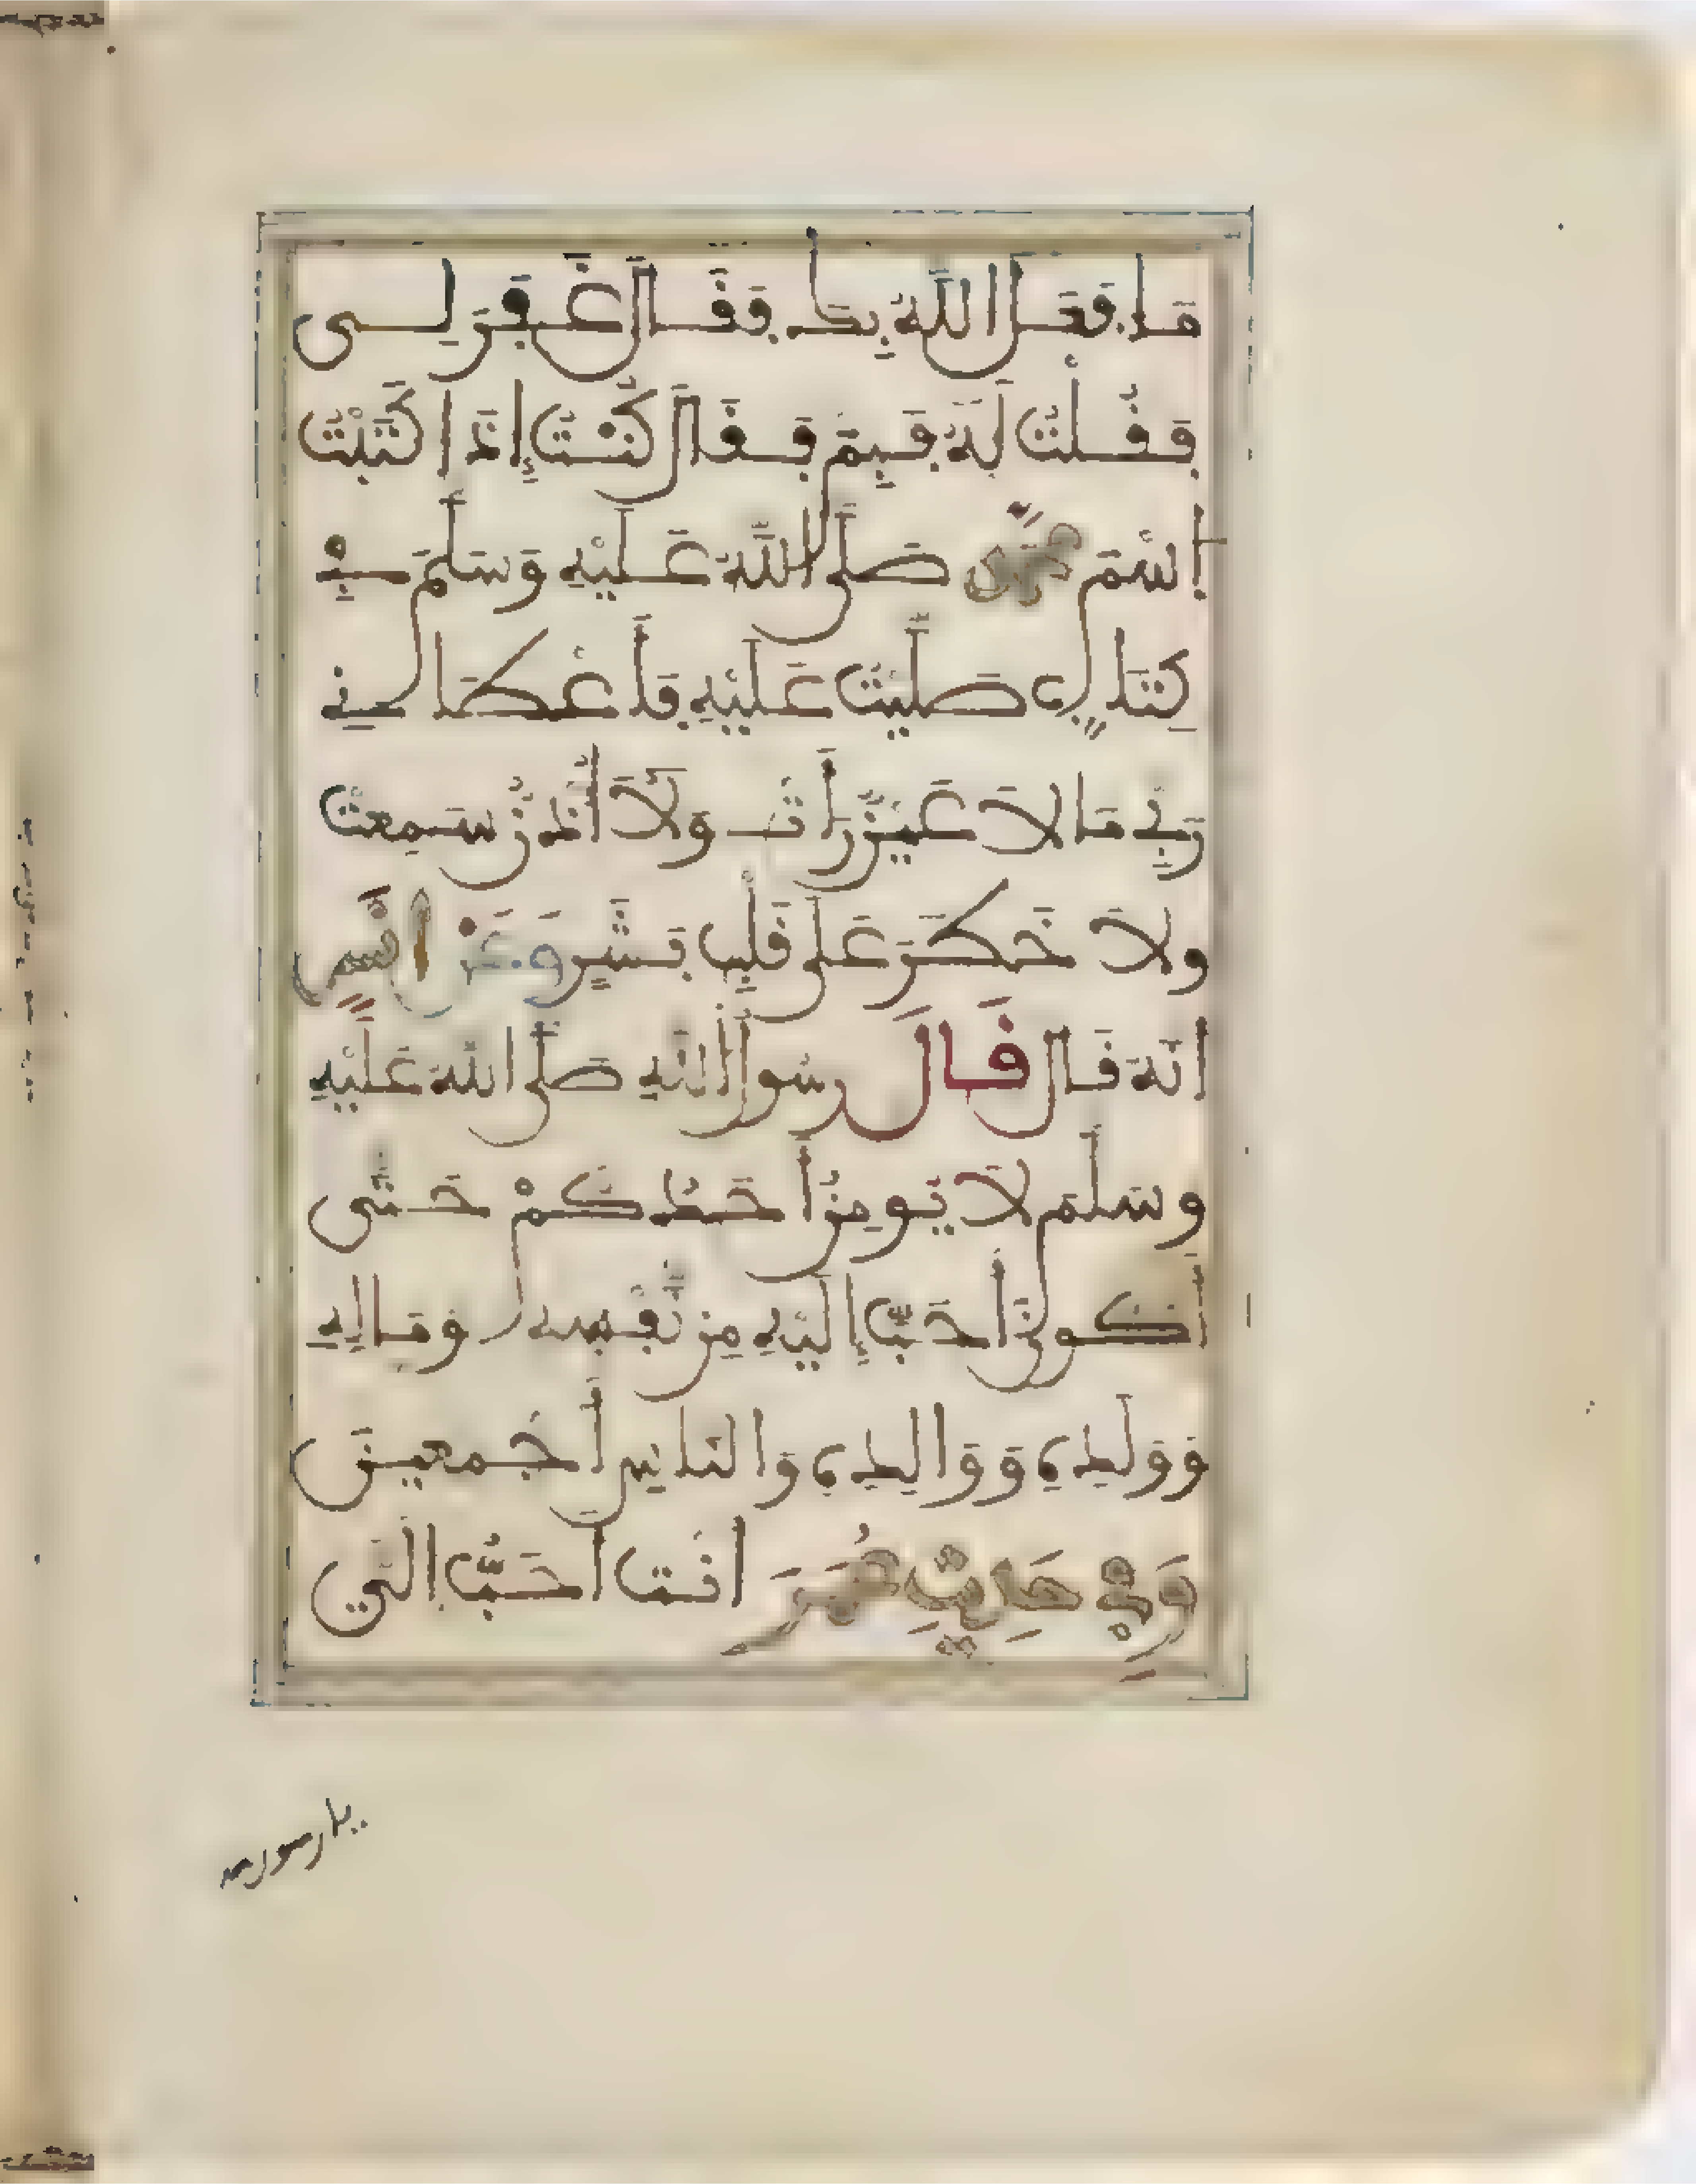 مَا فَعَلَ اللَّهُ بِكَ فَقَالَ غَفَرَ لِي
فَقُلْتُ لَهُ فَبِمَ فَقَالَ كُنْتُ إِذَا كَتَبْتُ
اِسْمَ مُحَمَّدٍ صَلَّى اللَّهُ عَلَيْهِ وَسَلَّمَ فِي
كِتَابٍ صَلَّيْتُ عَلَيْهِ فَأَعْطَانِي
رَبِّي مَا لَا عَيْنٌ رَأَتْ وَلَا أُذُنٌ سَمِعَتْ
وَلَا خَطَرَ عَلَى قَلْبِ بَشَرٍ وَعَنْ أَنَسٍ
أَنَّهُ قَالَ قَالَ رَسُولُ اللَّهِ صَلَّى اللَّهُ عَلَيْهِ
وَسَلَّمَ لَا يُومِنُ أَحَدُكُمْ حَتَّى
أَكُونَ أَحَبَّ إِلَيْهِ مِن نَّفْسِهِ وَمَالِهِ
وَوَلَدِهِ وَوَالِدِهِ وَالنَّاسِ أَجْمَعِينَ
وَفِي حَدِيثِ عُمَرَ أَنْتَ أَحَبُّ إِلَيَّ
يا رسول